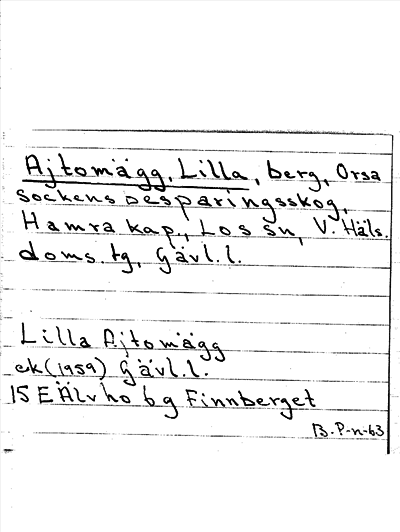 Ajtomägg, Lilla, berg, Orsa
sockens Besparingsskog,
Hamra kap., Los sn, V. Häls.
doms. tg, Gävl. l.
Lilla Ajtomägg
ek (1959) Gävl. l.
15E Älvho 6g Finnberget
B. P-n-63